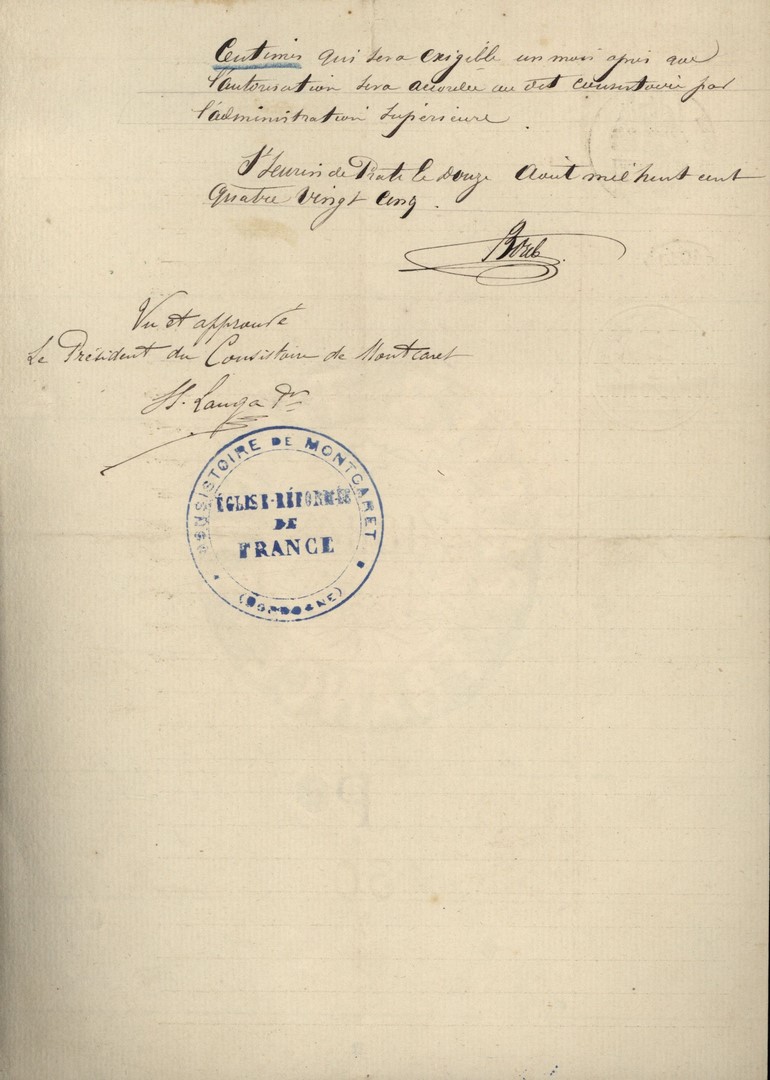 Centimes qui sera exigible un mois après que
l'autorisation sera accordée au dit consistoire par
l'administration Supérieure.
St Seurin de Prats le douze Août mil huit cent
quatre vingt cinq.
Vu et approuvé
Le Président du Consistoire de Montcaret
Lauga
CONSISTOIRE DE MONTCARET
ÉGLISE-RÉFORMÉE
DE
FRANCE
(DORDOGNE)